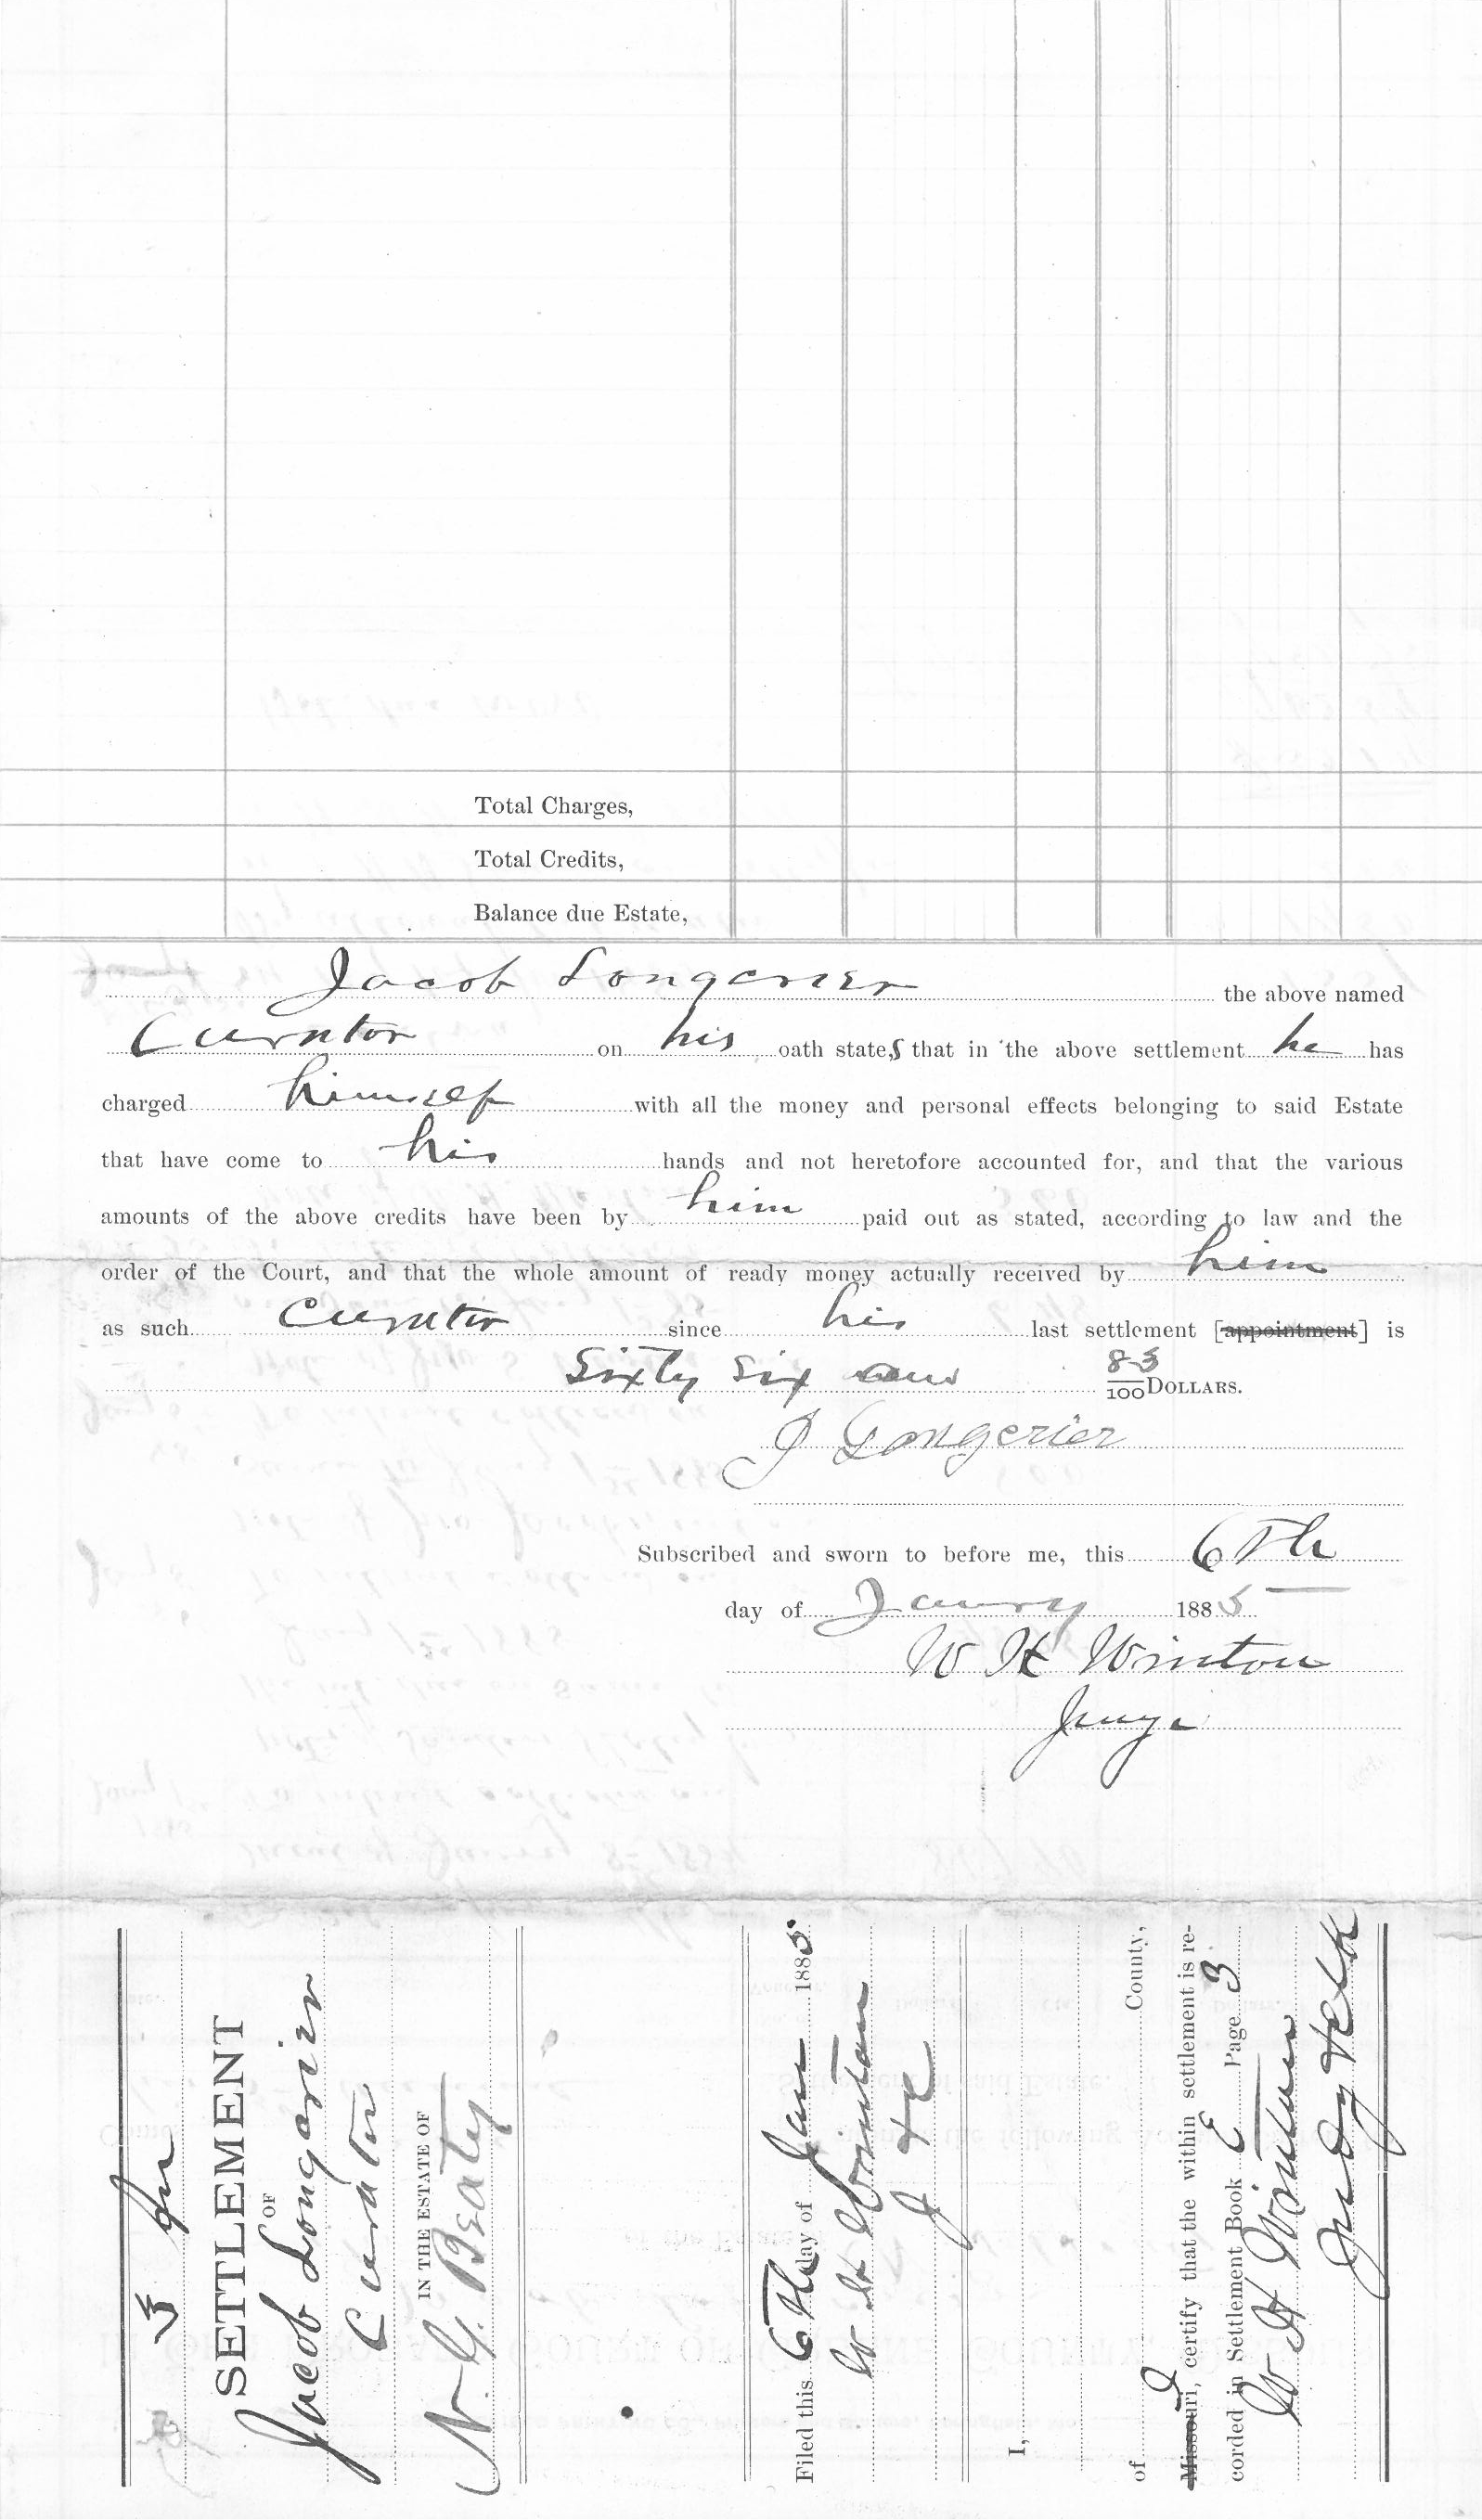 Total Charges,
Total Credits,
Balance due Estate,
Jacob Longerier the above named
Curator on his oath states that in the above settlement he has
charged himself with all the money and personal effects belonging to said Estate
that have come to his hands and not heretofore accounted for, and that the various
amounts of the above credits have been by him paid out as stated, according to law and the
order of the Court, and that the whole amount of ready money actually received by him
as such Curator since his last settlement [appointment] is
Sixty Six and 83/100 DOLLARS.
J Longerier
Subscribed and sworn to before me, this 6th
day of Janry 1885
W H Winton
Judge
SETTLEMENT
OF
Jacob Longerier
Curator
IN THE ESTATE OF
N. G. Beaty
Filed this 6th day of Jan 1885
W H Winton
I,
of County,
Missouri, I certify that the within settlement is re-
corded in Settlement Book E Page 3
W H Winton
Judge